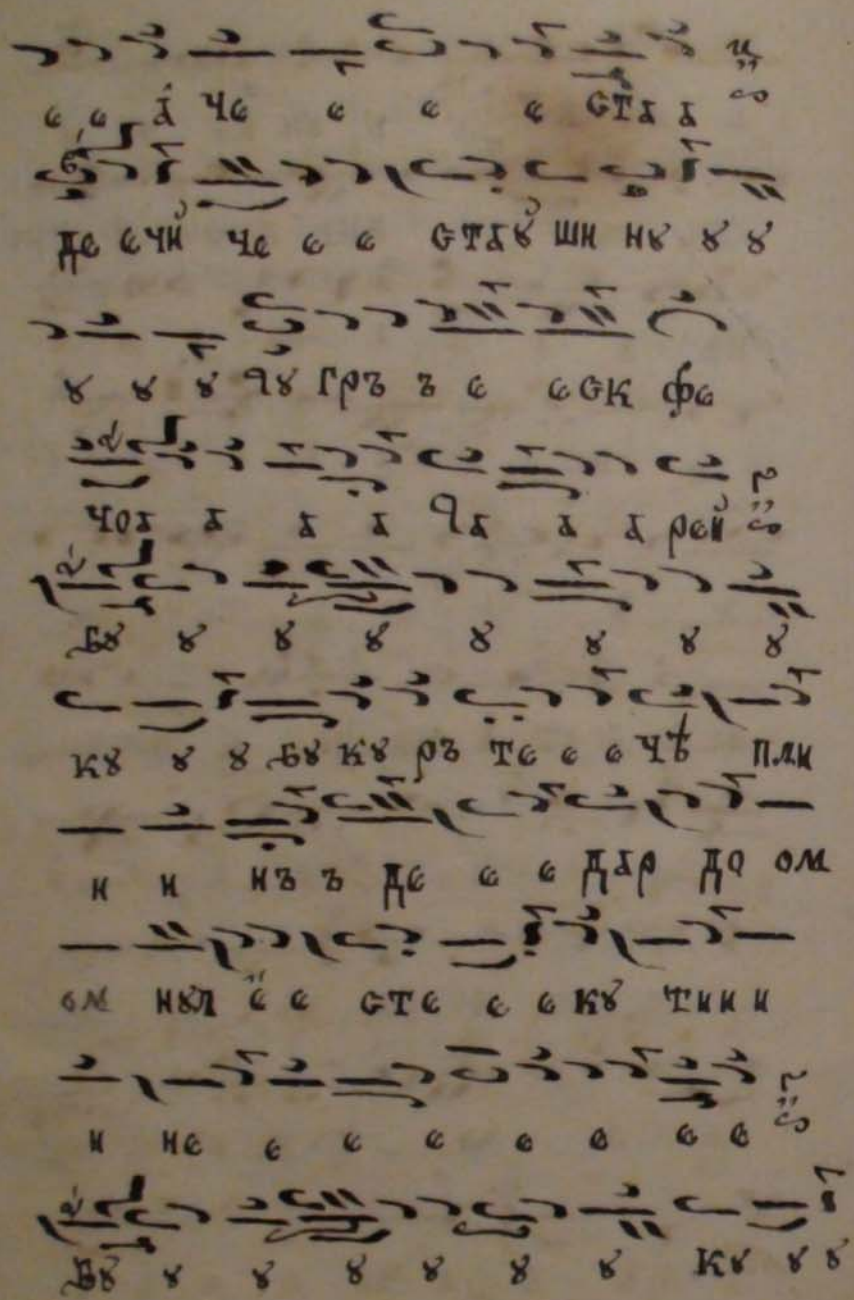 є є ꙟ чє є є є ста а
дє єчй чє є є стаꙋ ши нꙋ ꙋ ꙋ
ꙋ ꙋ ꙋ чꙋ гръ ъ є єск фє
чоа а а а ча а а рєй
бꙋ ꙋ ꙋ ꙋ ꙋ ꙋ ꙋ ꙋ
кꙋ ꙋ ꙋ бꙋ кꙋ ръ тє є є чѣ пли
и и нъ ъ дє є є дар до ом
ом нꙋл є є стє є є кꙋ тини и
и нє є є є є є є є
бꙋ ꙋ ꙋ ꙋ ꙋ ꙋ ꙋ кꙋ ꙋ ꙋ